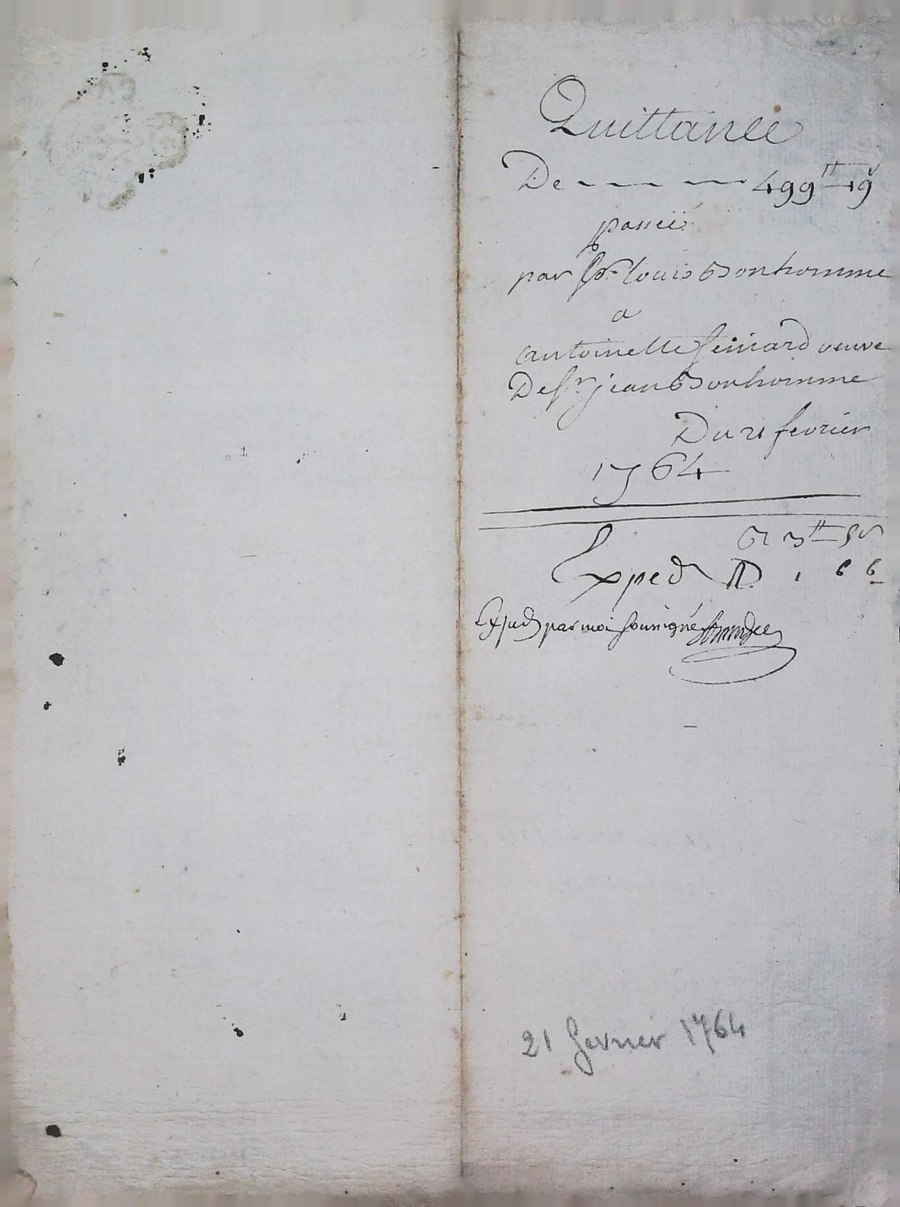 Quittance
De — — — 499tt 19s
passée
par Sr Louis Bonhomme
a
antoinette veuve
De sr jean Bonhomme
Du 21 fevrier
1764
3tt
Exped
Exped par moi soussigné
21 fevrier 1764